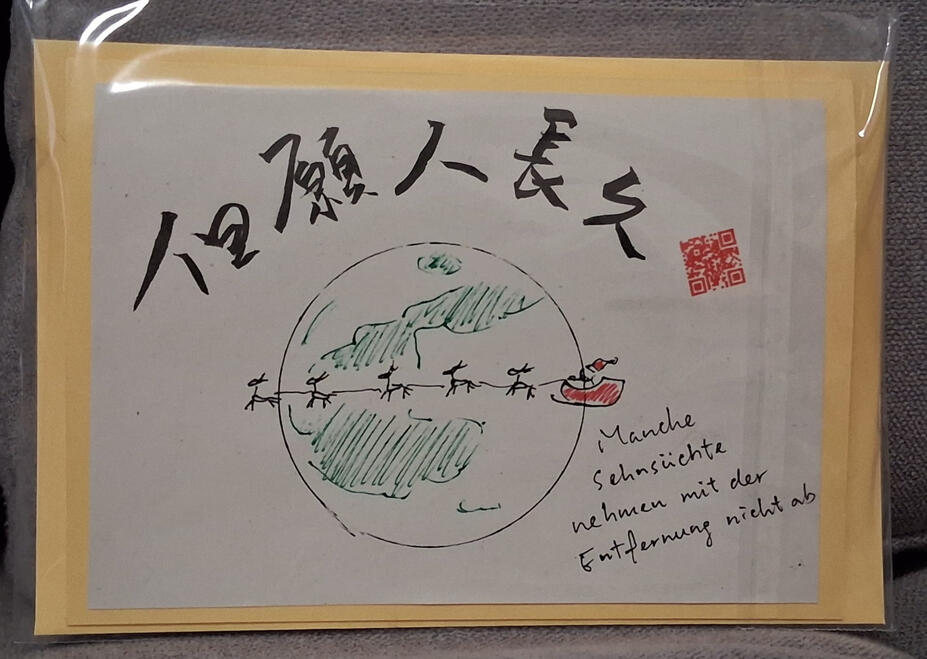 但願人長久
Manche
Sehnsüchte
nehmen mit der
Entfernung nicht ab